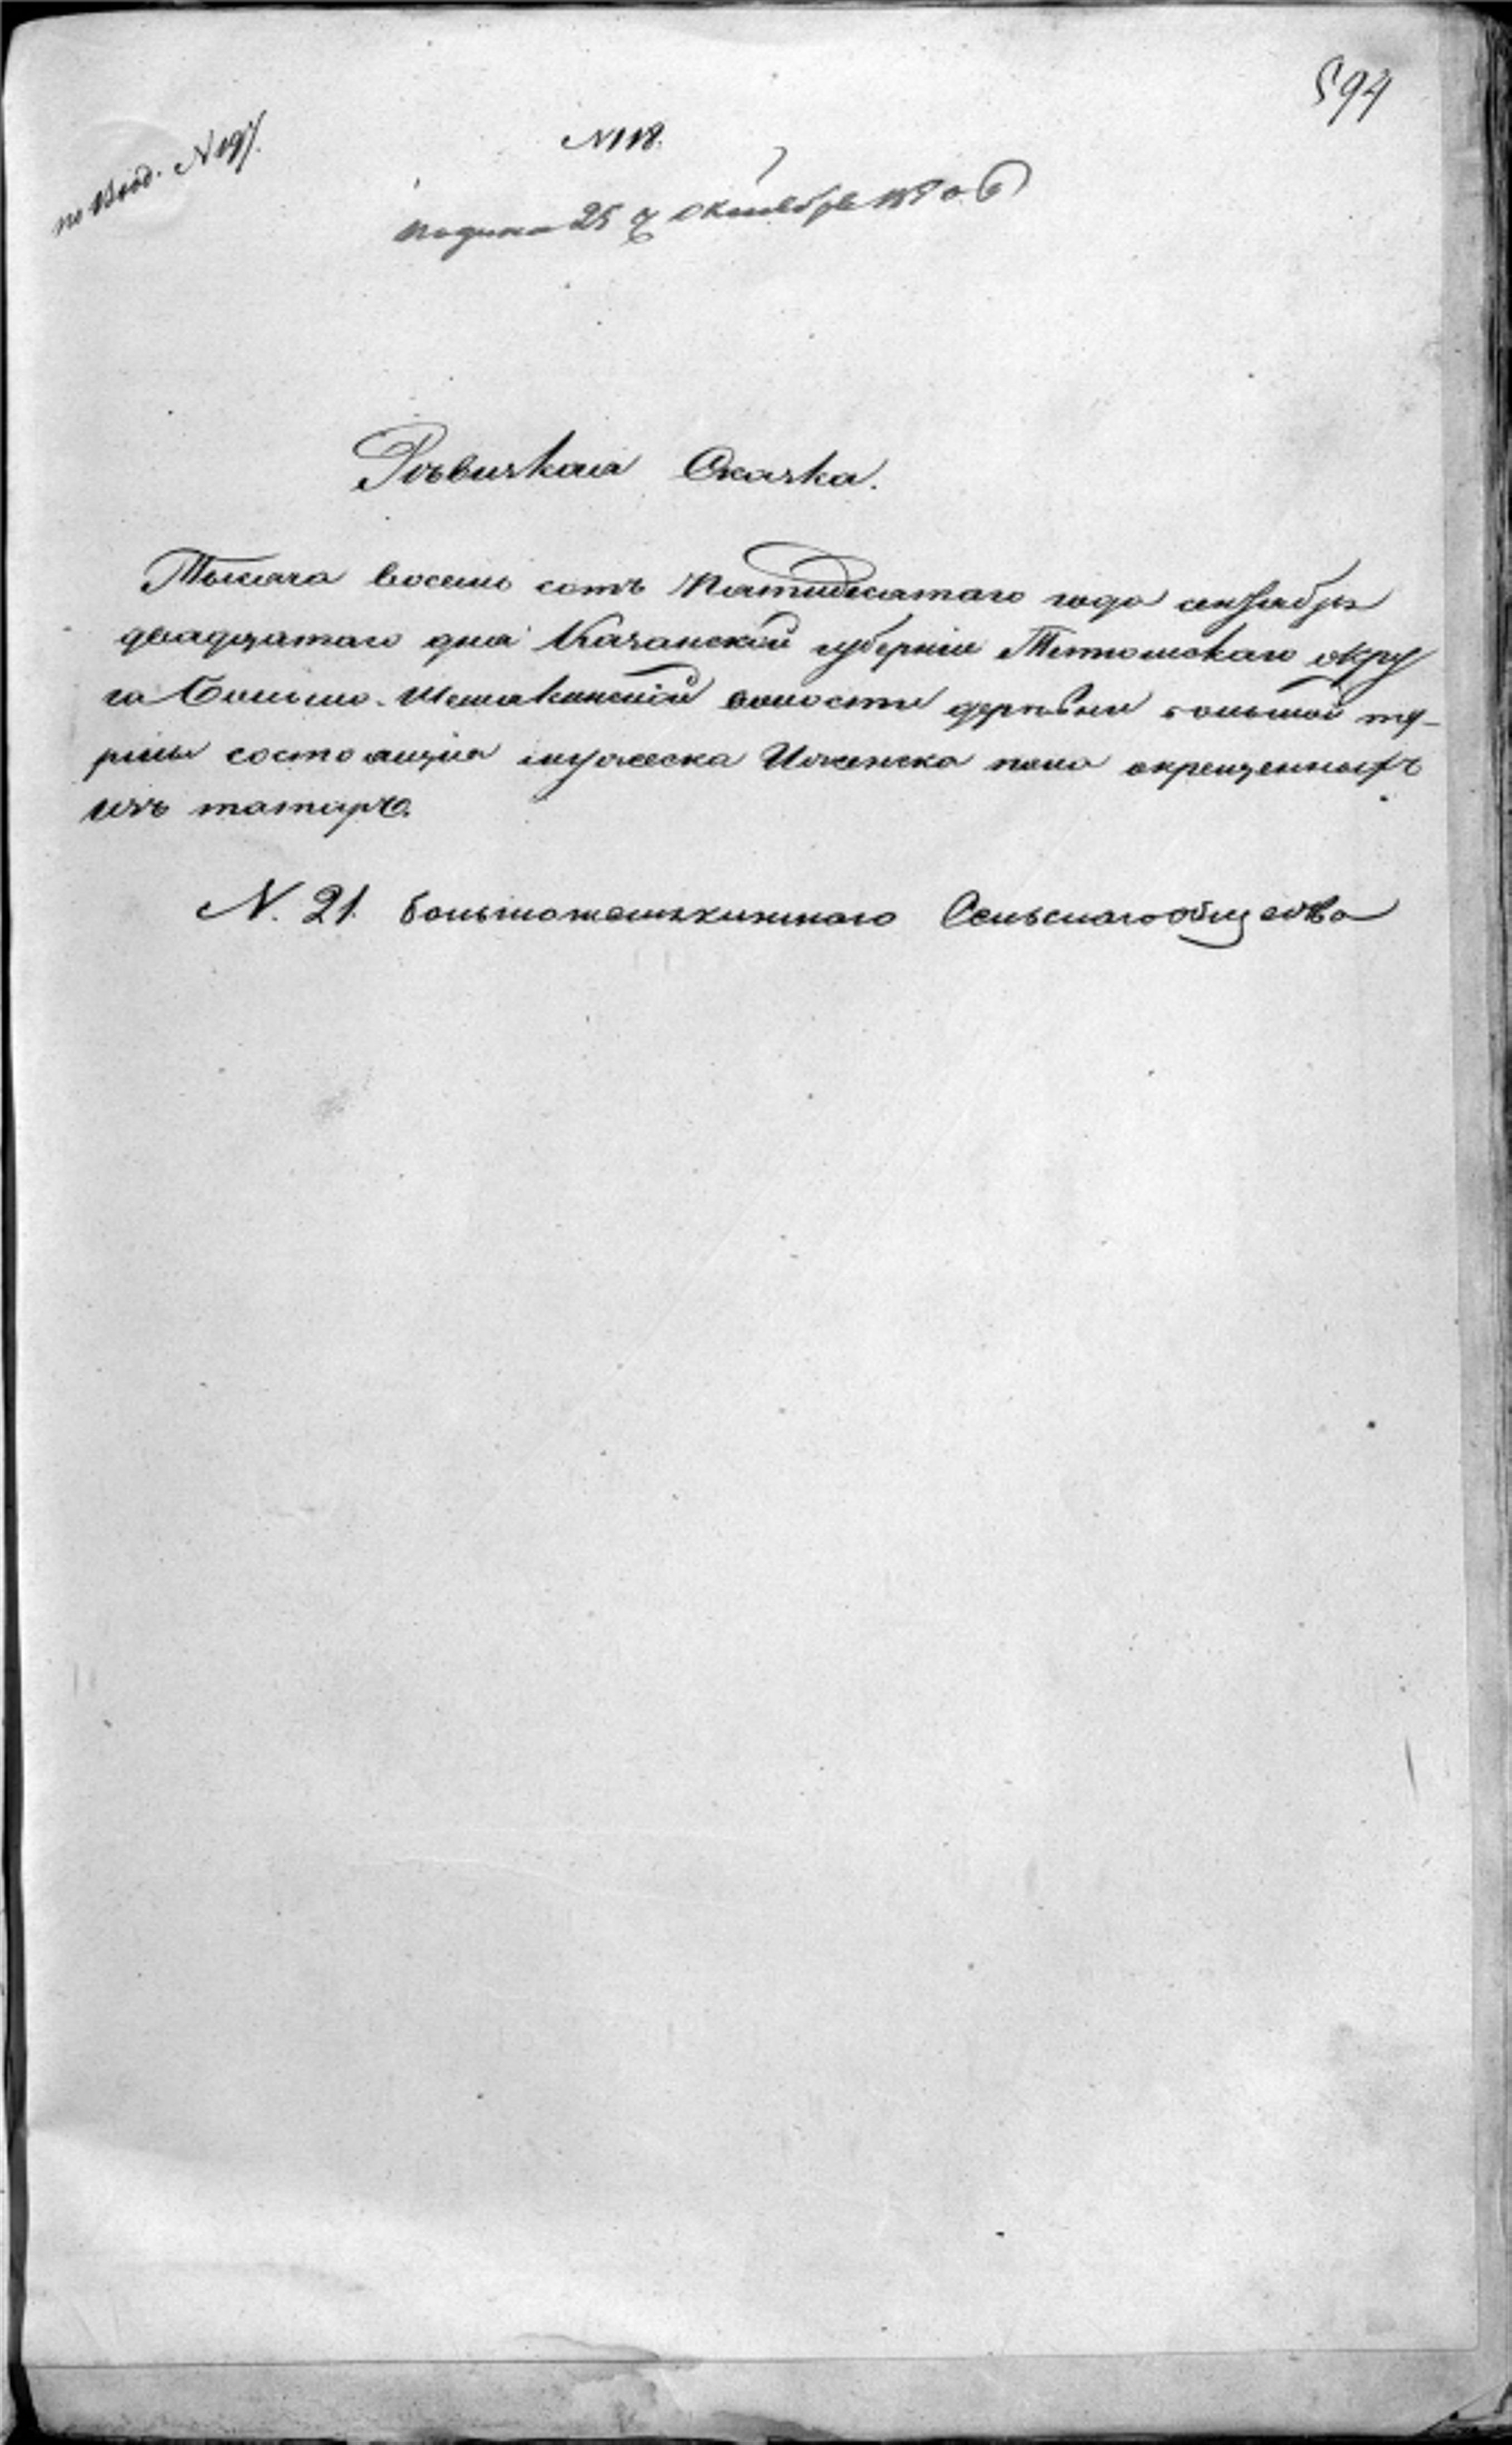 594
по Вход. N 197.
N 118.
подана 25 г октября 1850 г
Ревизская Сказка.
Тысяча восемь сотъ пятидесятаго года октября
двадцатаго дня Казанской губерніи Тетюшскаго окру
га Больше-Шемякинской волости деревни большой ту-
рмы состоящия мужеска И женска пола окрещенныхъ
изъ татаръ.
N. 21. большошемякинского Сельскаго общества